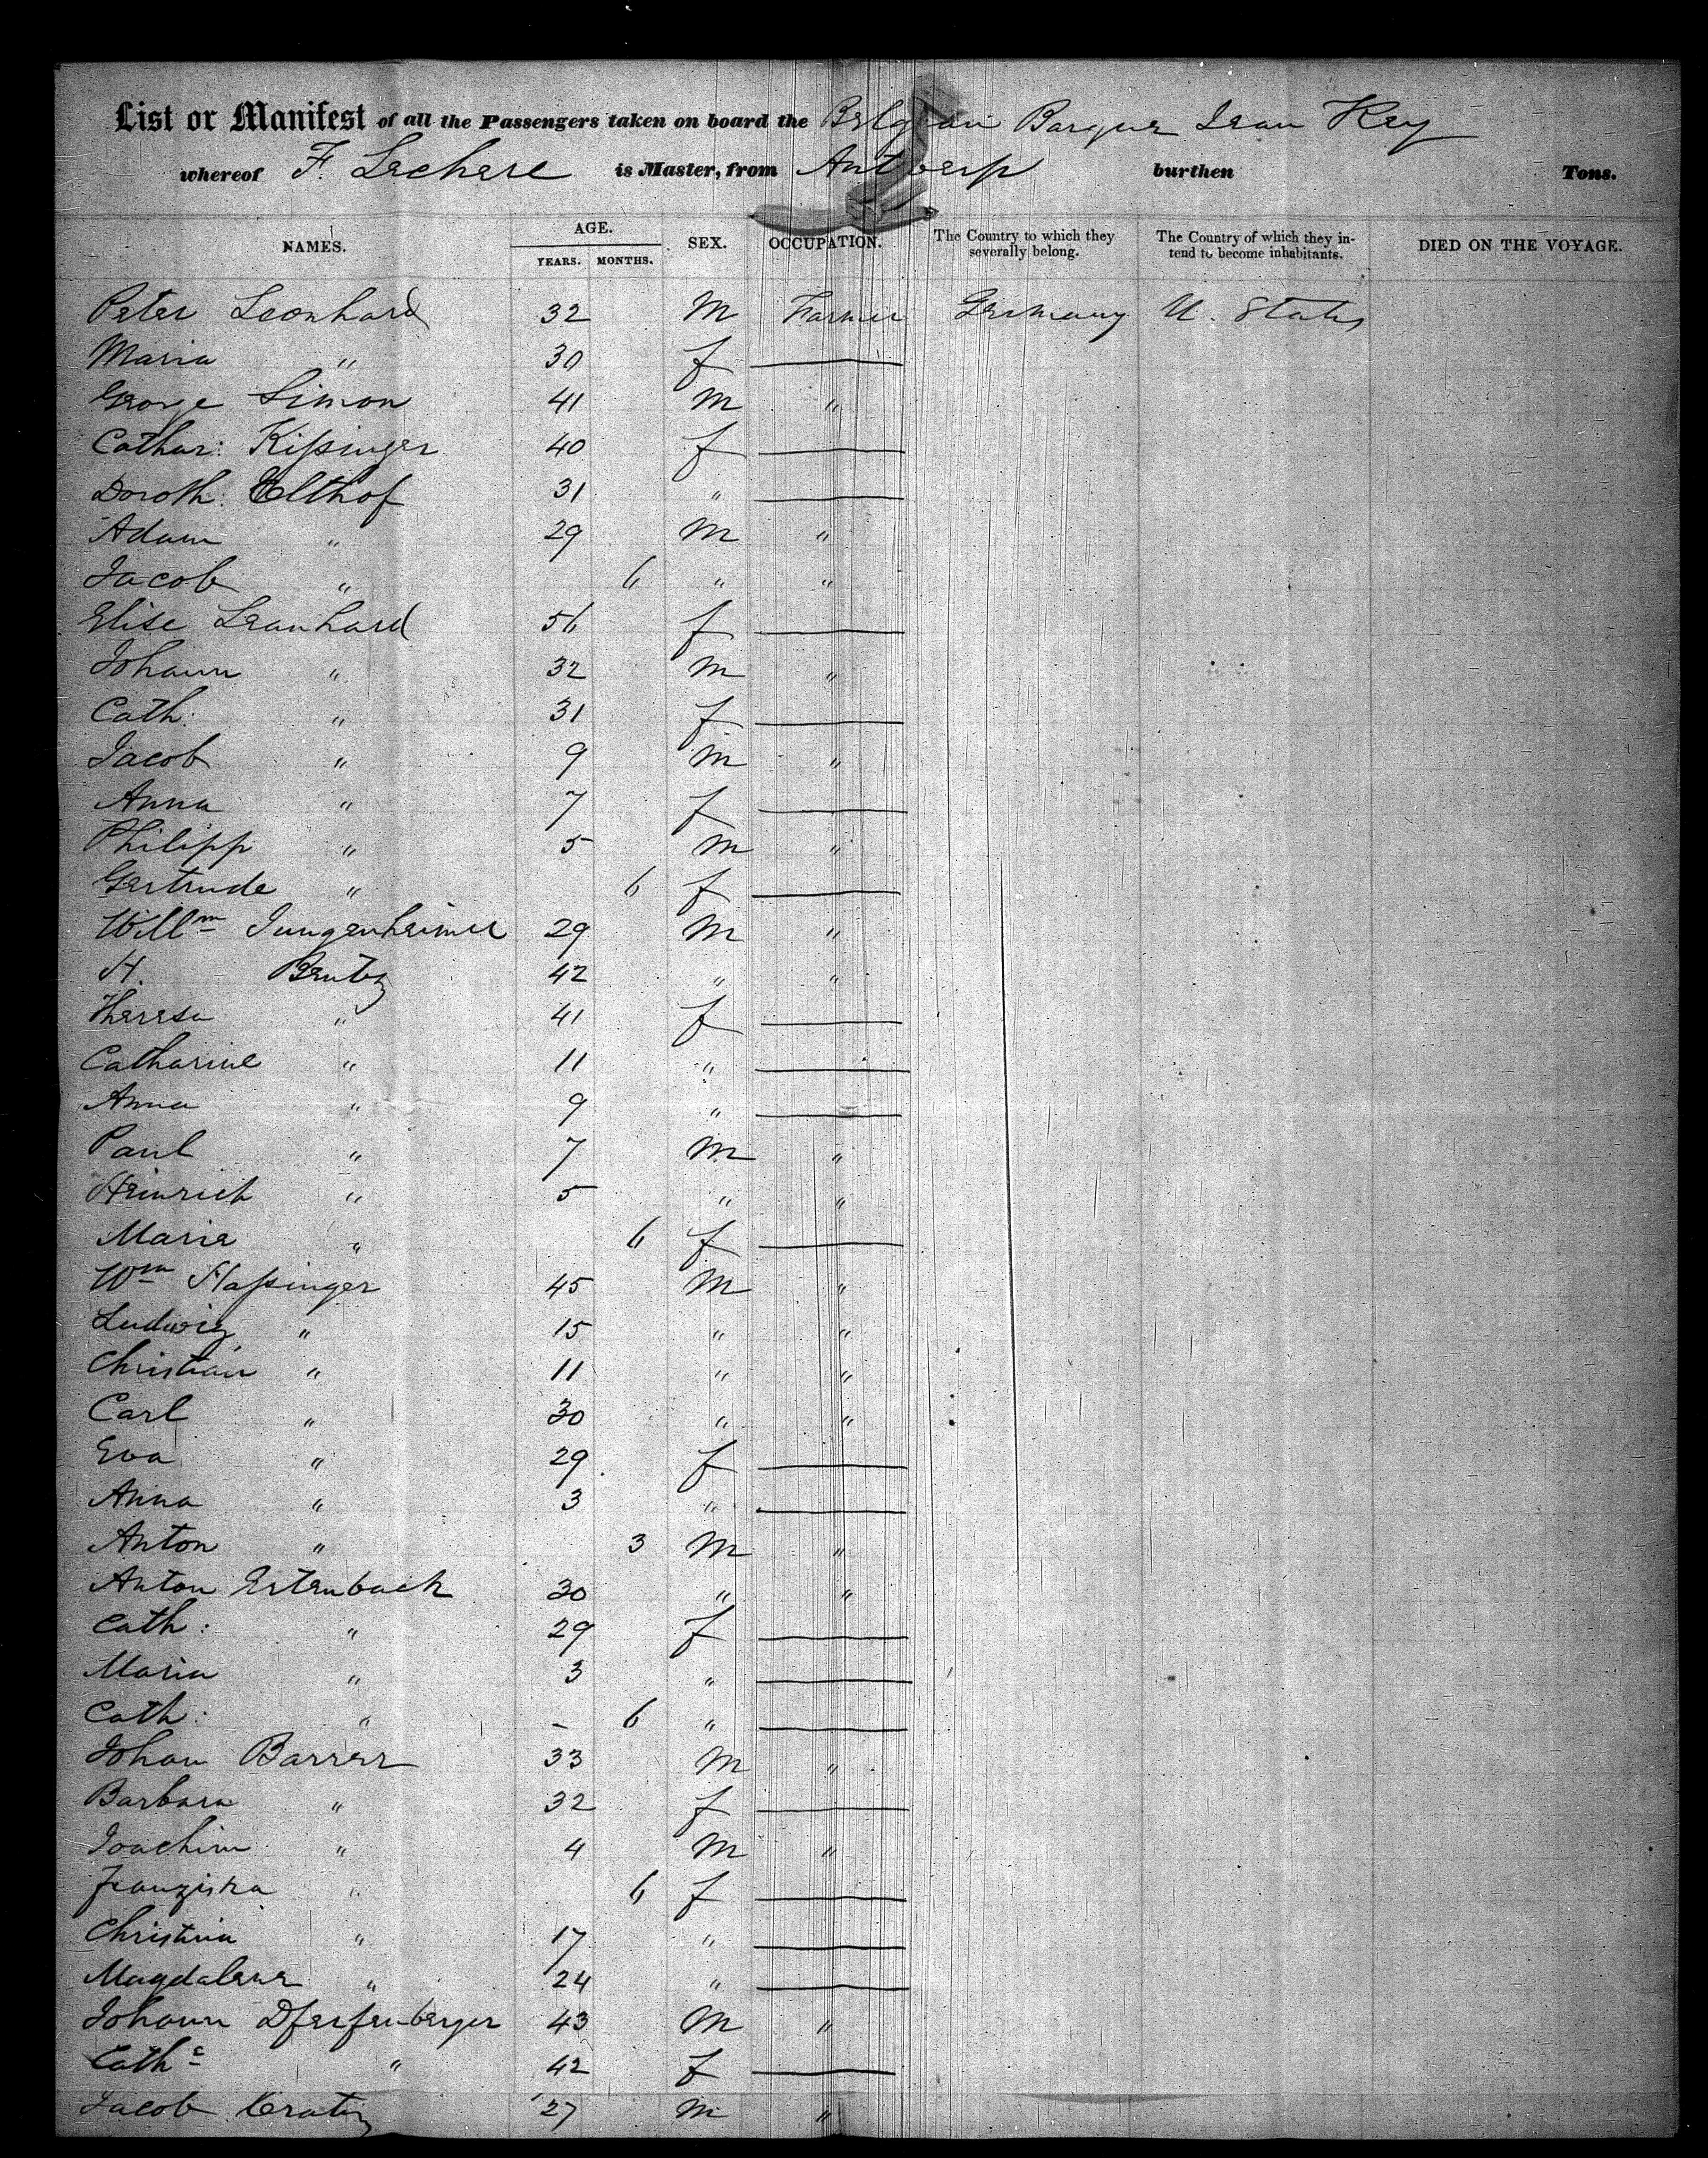 List or Manifest of all the Passengers taken on board the Belgian Barque Jean Key
whereof F. Lechere is Master, from Antwerp burthen Tons.
NAMES. AGE. YEARS. MONTHS. SEX. OCCUPATION. The Country to which they severally belong. The Country of which they intend to become inhabitants. DIED ON THE VOYAGE.
Peter Leonhard 32 M Farmer Germany U. States
Maria " 30 f —
George Simon 41 M "
Cathar: Kissinger 40 f —
Doroth: Elthof 31 " —
Adam " 29 M "
Jacob " 6 " "
Elise Leanhard 56 f —
Johann " 32 M "
Cath: " 31 f —
Jacob " 9 M "
Anna " 7 f —
Philipp " 5 M "
Gertrude " 6 f —
Willm Jungenheimer 29 M "
H. Bentz 42 " "
Theresa " 41 f —
Catharine " 11 " —
Anna " 9 " —
Paul " 7 M "
Heinrich " 5 " "
Marie " 6 f —
Wm Hassinger 45 M "
Ludwig " 15 " "
Christian " 11 " "
Carl " 30 " "
Eva " 29 f —
Anna " 3 " —
Anton " 3 M "
Anton Ertenbach 30 " "
Cath: " 29 f —
Maria " 3 " —
Cath: " – 6 " —
Johan Barrer 33 M "
Barbara " 32 f —
Joachim " 4 M "
Franziska " 6 f —
Christina " 17 " —
Magdalene " 24 " —
Johann 43 M "
Cathe " 42 f —
Jacob Cratz 27 M "